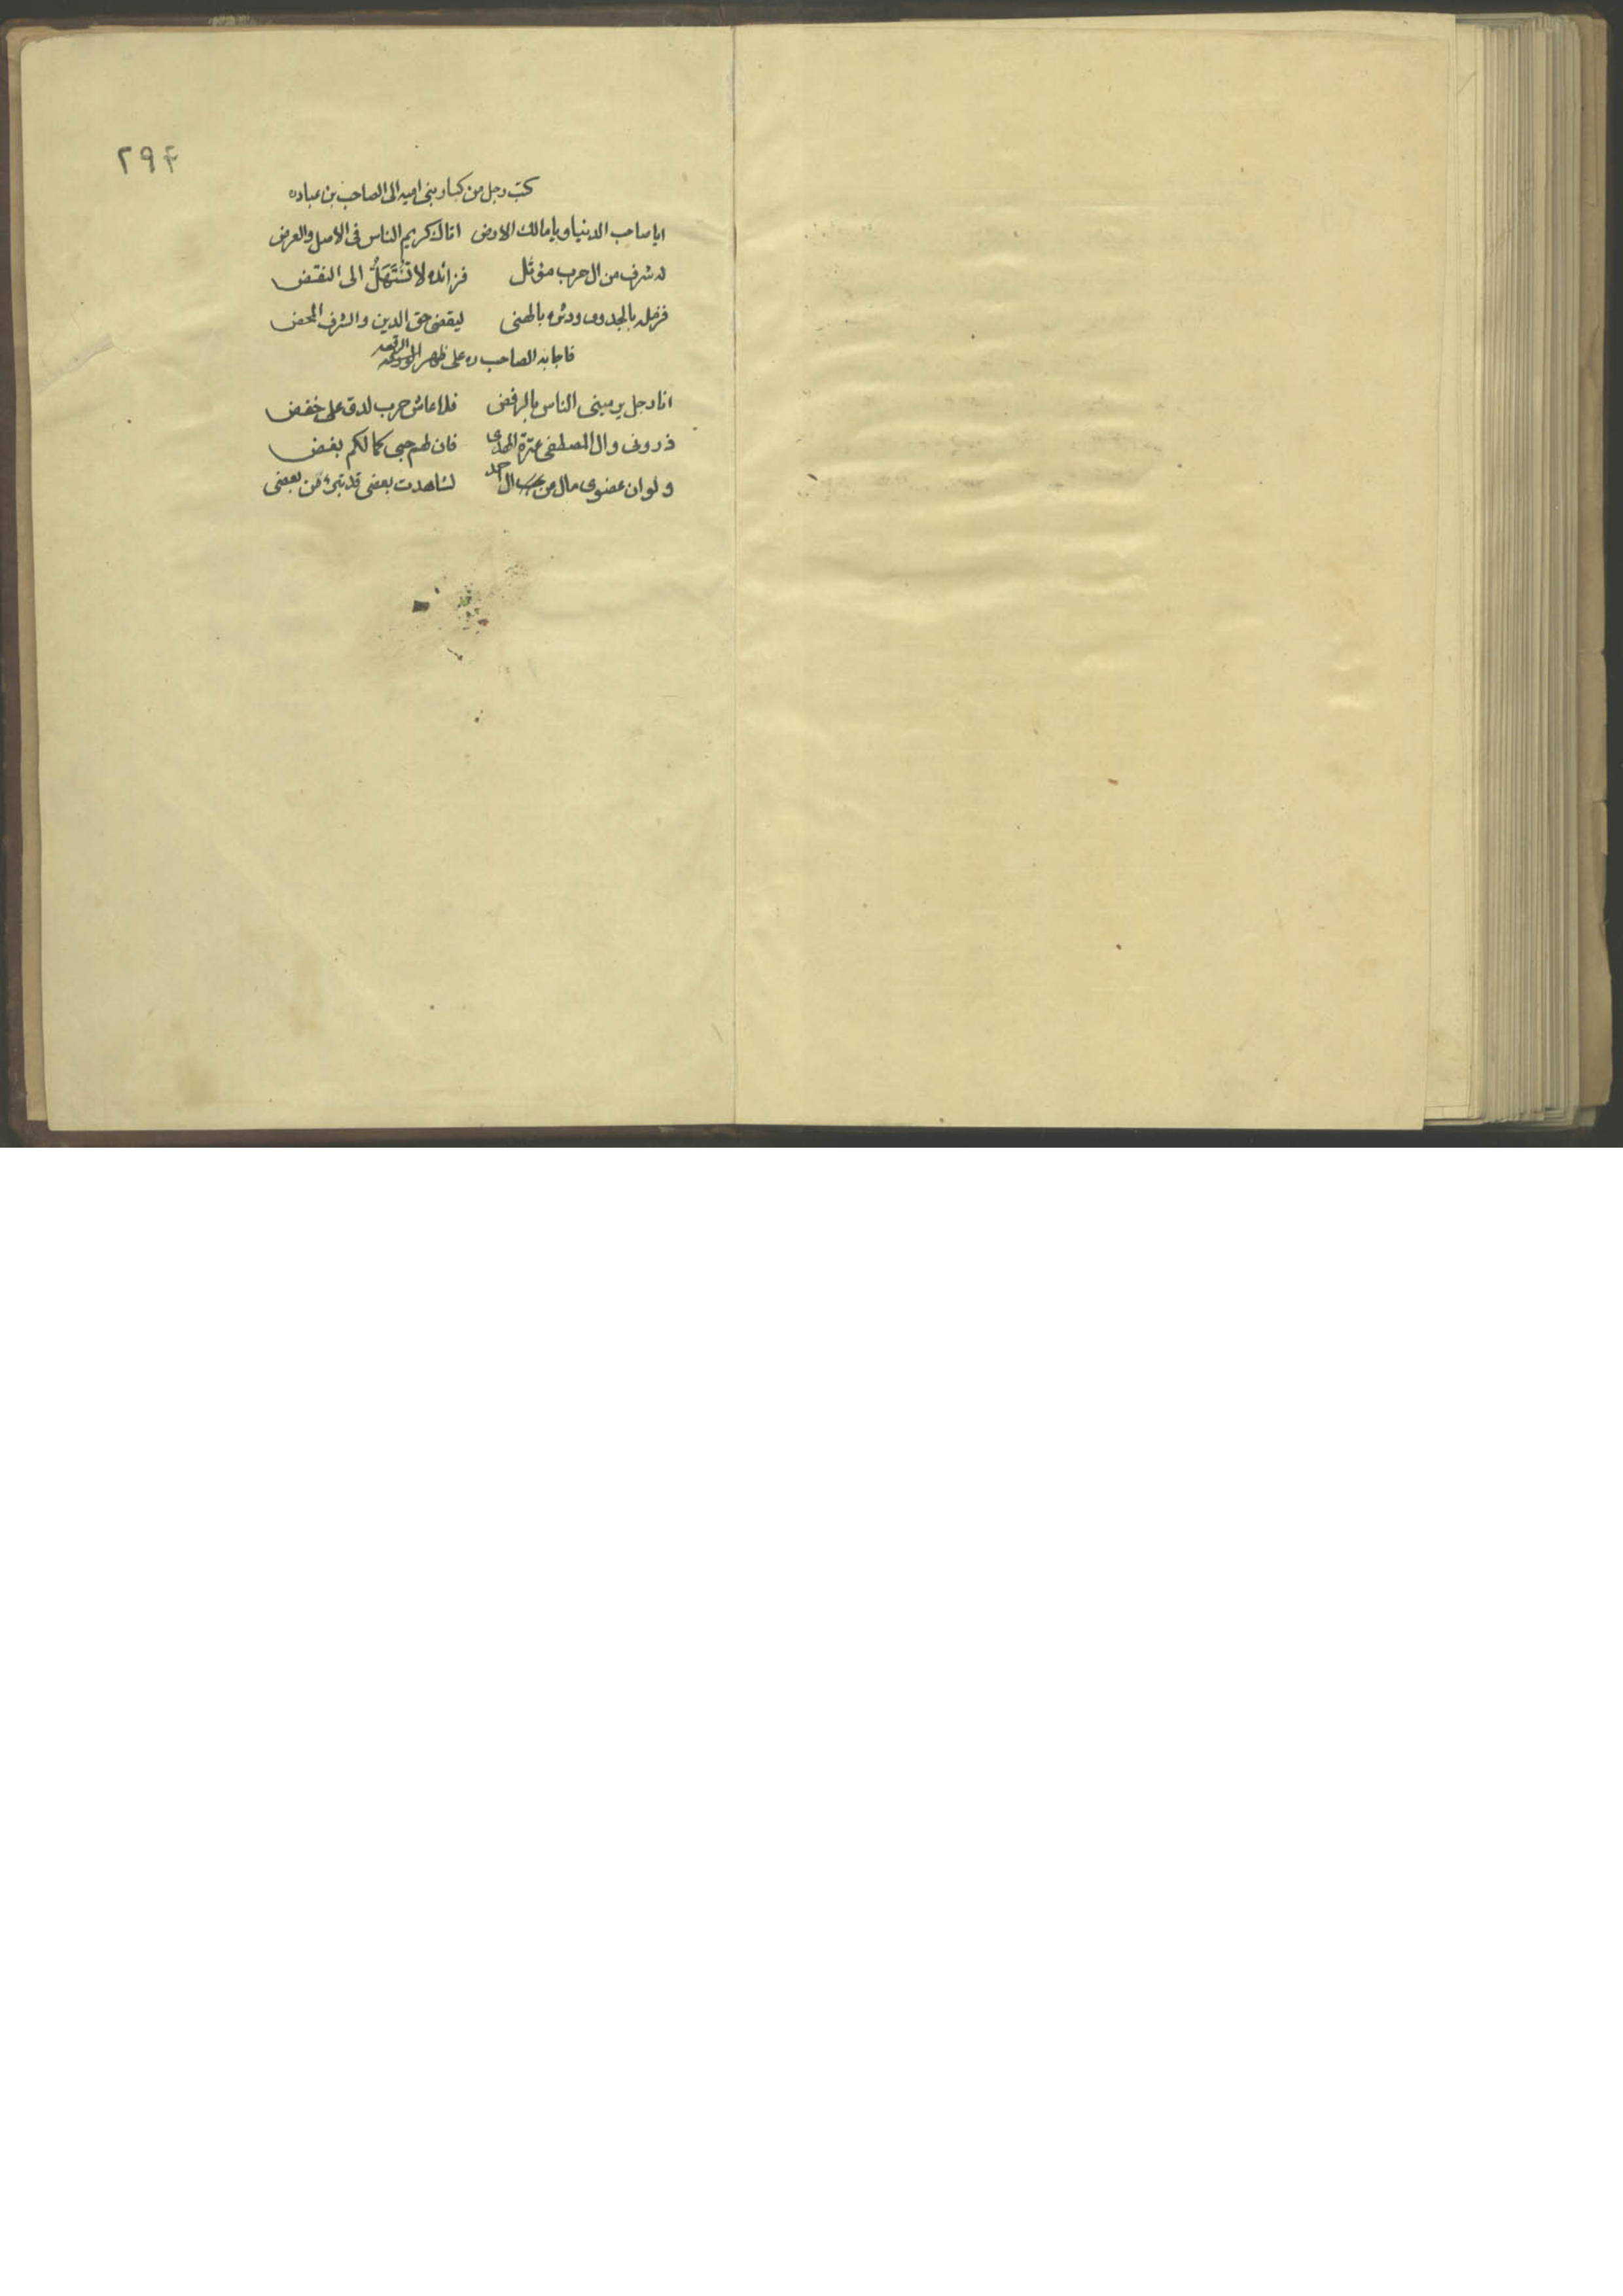 ۲۹۴
كتب رجل من كبار بنى اميه الى الصاحب بن عباد ره
ايا صاحب الدنيا و يا مالك الارض اتاك كريم الناس فى الاصل والعرض
له شرف من ال حرب مؤثل فزائده لا تستهل الى النقض
فزمله بالجدوى ودثره بالهنى ليقضى حق الدين والشرف المحض
فاجابه الصاحب ره على ظهر الرقعه
انا رجل يرمينى الناس بالرفض فلا عاش حرب لدى على خفض
ذرونى وال المصطفى عترة الهدى فان لهم حبى كما لكم بغضى
ولو ان عضوى مال عن ال احمد لشاهدت بعضى قد تبرء من بعضى